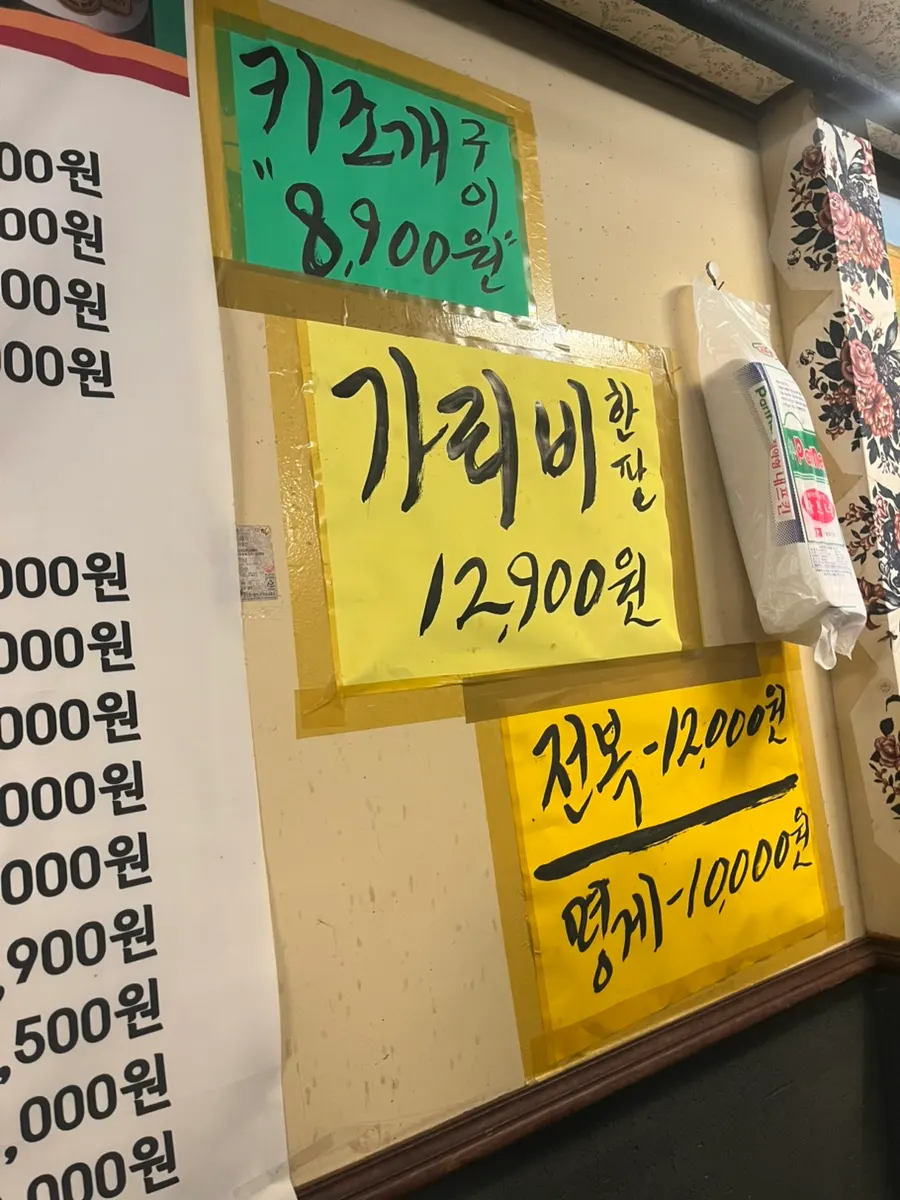 00원
00원
00원
000원
000원
000원
000원
000원
000원
,900원
,500원
,000원
000원
키조개구이
"8,900원"
가리비 한판
12,900원
전복-12,000원
멍게-10,000원